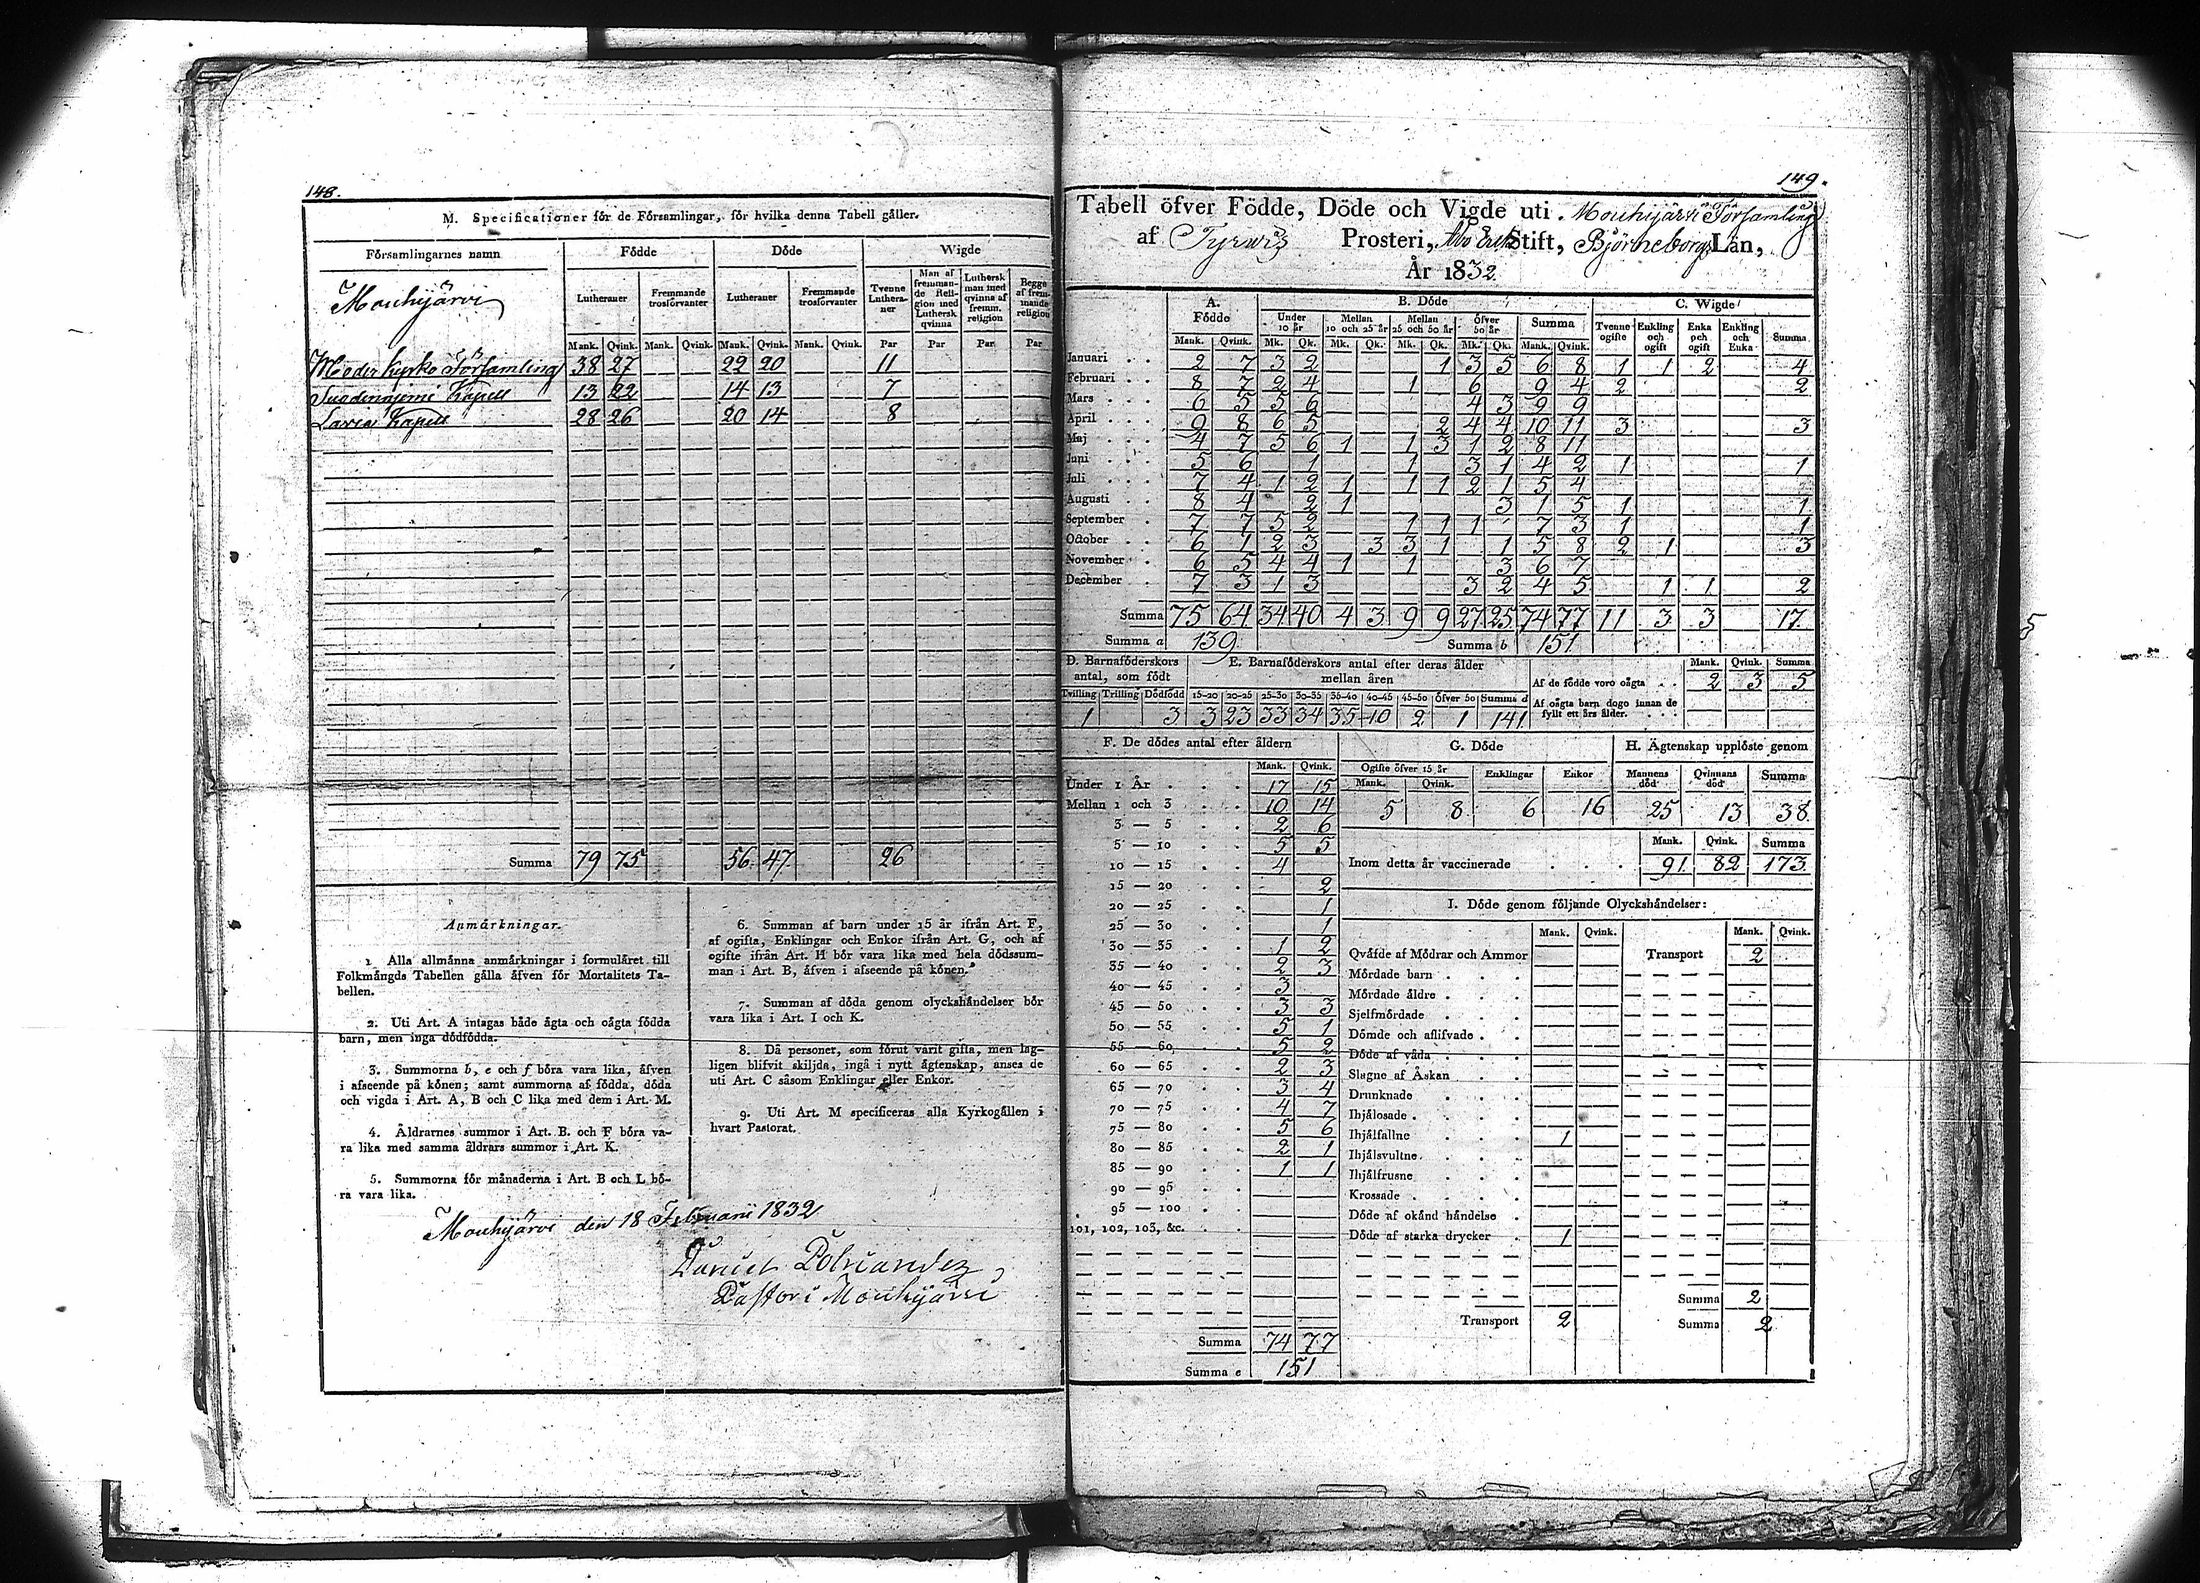 148.
M. Specificationer för de Församlingar, för hvilka denna Tabell gäller.
Församlingarnes namn Födde Döde Wigde
Lutheraner Fremmande trosförvanter Lutheraner Fremmande trosförvanter Tvenne Lutheraner Man af fremmande Religion med Luthersk qvinna Luthersk man med qvinna af fremm. religion Begge af fremmande religion
Mouhijärvi
Mank. Qvink. Mank. Qvink. Mank. Qvink. Mank. Qvink. Par Par Par Par
Moderkyrko Församling 38 27 22 20 11
Suodenniemi Kapell 13 22 14 13 7
Lavia Kapell 28 26 20 14 8
Summa 79 75 56 47 26
Anmärkningar.
1. Alla allmänna anmärkningar i formuläret till
Folkmängds Tabellen gälla äfven för Mortalitets Ta-
bellen.
2. Uti Art. A intagas både ägta och oägta födda
barn, men inga dödfödda.
3. Summorna b, e och f böra vara lika, äfven
i afseende på könen; samt summorna af födda, döda
och vigda i Art. A, B och C lika med dem i Art. M.
4. Åldrarnes summor i Art. B. och F böra va-
ra lika med samma åldrars summor i Art. K.
5. Summorna för månaderna i Art. B och L bö-
ra vara lika.
6. Summan af barn under 15 år ifrån Art. F,
af ogifta, Enklingar och Enkor ifrån Art. G, och af
ogifte ifrån Art. H bör vara lika med hela dödssum-
man i Art. B, äfven i afseende på könen.
7. Summan af döda genom olyckshändelser bör
vara lika i Art. I och K.
8. Då personer, som förut varit gifta, men lag-
ligen blifvit skiljda, ingå i nytt ägtenskap, anses de
uti Art. C såsom Enklingar eller Enkor.
9. Uti Art. M specificeras alla Kyrkogällen i
hvart Pastorat.
Mouhijärvi den 18 Februarii 1832
Daniel Polviander
Pastor i Mouhijärvi
149.
Tabell öfver Födde, Döde och Vigde uti Mouhijärvi Församling
af Tyrwis Prosteri, Åbo Erke Stift, Björneborgs Län,
År 1832.
A. Födde B. Döde C. Wigde
Under 10 år Mellan 10 och 25 år Mellan 25 och 50 år Öfver 50 år Summa Tvenne ogifte Enkling och ogift Enka och ogift Enkling och Enka Summa
Mank. Qvink. Mk. Qk. Mk. Qk. Mk. Qk. Mk. Qk. Mank. Qvink.
Januari 2 7 3 2 1 3 5 6 8 1 1 2 4
Februari 8 7 2 4 1 6 9 4 2 2
Mars 6 5 5 6 4 3 9 9
April 9 8 6 5 2 4 4 10 11 3 3
Maj 4 7 5 6 1 1 3 1 2 8 11
Juni 5 6 1 1 3 1 4 2 1 1
Juli 7 4 1 2 1 1 1 2 1 5 4
Augusti 8 4 2 1 3 1 5 1 1
September 7 7 5 2 1 1 1 7 3 1 1
October 6 1 2 3 3 3 1 1 5 8 2 1 3
November 6 5 4 4 1 1 3 6 7
December 7 3 1 3 3 2 4 5 1 1 2
Summa 75 64 34 40 4 3 9 9 27 25 74 77 11 3 3 17
Summa a 139 Summa b 151
D. Barnaföderskors antal, som födt
Tvilling Trilling Dödfödd
1 3
E. Barnaföderskors antal efter deras ålder mellan åren
15-20 20-25 25-30 30-35 35-40 40-45 45-50 öfver 50 Summa d
3 23 33 34 35 10 2 1 141
Mank. Qvink. Summa
Af de födde voro oägta 2 3 5
Af oägta barn dogo innan de fyllt ett års ålder.
F. De dödes antal efter åldern
Mank. Qvink.
Under 1 År 17 15
Mellan 1 och 3 10 14
3 — 5 2 6
5 — 10 5 5
10 — 15 4
15 — 20 2
20 — 25 1
25 — 30 1
30 — 35 1 2
35 — 40 2 3
40 — 45 3
45 — 50 3 3
50 — 55 5 1
55 — 60 5 2
60 — 65 2 3
65 — 70 3 4
70 — 75 4 7
75 — 80 5 6
80 — 85 2 1
85 — 90 1 1
90 — 95
95 — 100
101, 102, 103, &c.
Summa 74 77
Summa e 151
G. Döde
Ogifte öfver 15 år Enklingar Enkor
Mank. Qvink.
5 8 6 16
H. Ägtenskap upplöste genom
Mannens död Qvinnans död Summa
25 13 38
Mank. Qvink. Summa
Inom detta år vaccinerade 91 82 173
I. Döde genom följande Olyckshändelser:
Mank. Qvink. Mank. Qvink.
Qväfde af Mödrar och Ammor Transport 2
Mördade barn
Mördade äldre
Sjelfmördade
Dömde och aflifvade
Döde af våda
Slagne af Åskan
Drunknade
Ihjälosade
Ihjälfallne 1
Ihjälsvultne
Ihjälfrusne
Krossade
Döde af okänd händelse
Döde af starka drycker 1
Summa 2
Transport 2 Summa 2